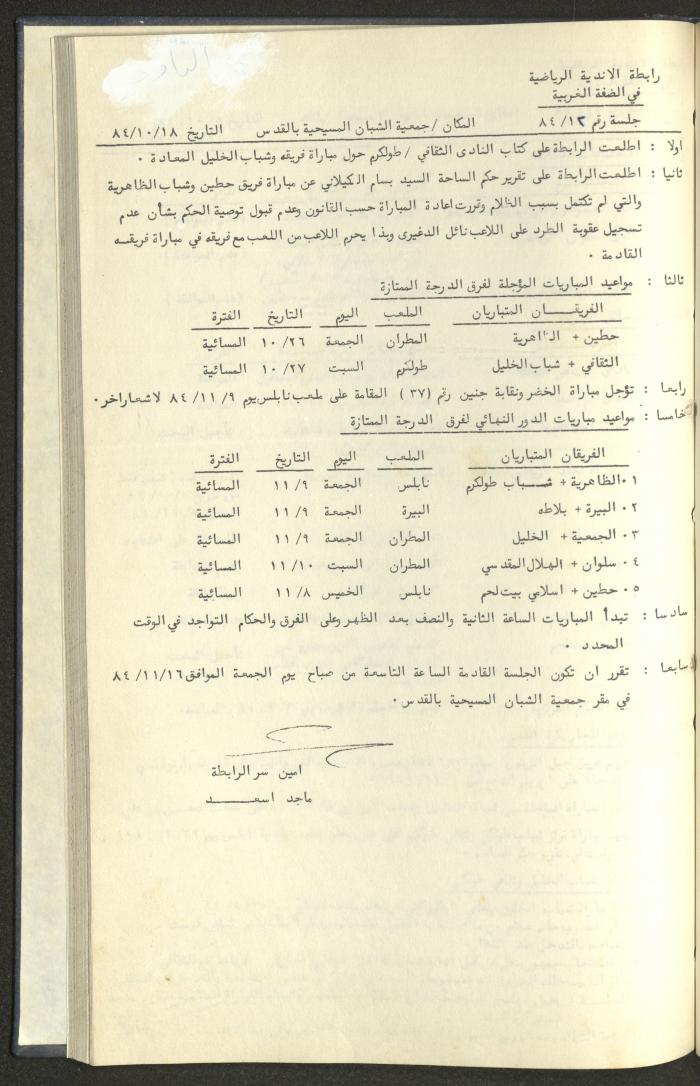 رابطة الاندية الرياضية
في الضفة الغربية
جلسة رقم ٨٤/١٢ المكان / جمعية الشبان المسيحية بالقدس التاريخ ٨٤/١٠/١٨
اولا : اطلعت الرابطة على كتاب النادى الثقافي / طولكرم حول مباراة فريقه وشباب الخليل المعادة .
ثانيا : اطلعت الرابطة على تقرير حكم الساحة السيد بسام الكيلاني عن مباراة فريق حطين وشباب الظاهرية
والتي لم تكتمل بسبب الظلام وتقررت اعادة المباراة حسب القانون وعدم قبول توصية الحكم بشأن عدم
تسجيل عقوبة الطرد على اللاعب نائل الدغيرى وبذا يحرم اللاعب من اللعب مع فريقه في مباراة فريقه
القادمة .
ثالثا : مواعيد المباريات المؤجلة لفرق الدرجة الممتازة
الفريقان المتباريان الملعب اليوم التاريخ الفترة
حطين + الظاهرية المطران الجمعة ١٠/٢٦ المسائية
الثقافي + شباب الخليل طولكرم السبت ١٠/٢٧ المسائية
رابعا : تؤجل مباراة الخضر ونقابة جنين رقم (٣٧) المقامة على ملعب نابلس يوم ٨٤/١١/٩ لاشعار اخر .
خامسا : مواعيد مباريات الدور النهائي لفرق الدرجة الممتازة
الفريقان المتباريان الملعب اليوم التاريخ الفترة
١. الظاهرية + شباب طولكرم نابلس الجمعة ١١/٩ المسائية
٢. البيرة + بلاطه البيرة الجمعة ١١/٩ المسائية
٣. الجمعية + الخليل المطران الجمعة ١١/٩ المسائية
٤. سلوان + الهلال المقدسي المطران السبت ١١/١٠ المسائية
٥. حطين + اسلامي بيت لحم نابلس الخميس ١١/٨ المسائية
سادسا : تبدأ المباريات الساعة الثانية والنصف بعد الظهر وعلى الفرق والحكام التواجد في الوقت
المحدد .
سابعا : تقرر ان تكون الجلسة القادمة الساعة التاسعة من صباح يوم الجمعة الموافق ٨٤/١١/١٦
في مقر جمعية الشبان المسيحية بالقدس .
امين سر الرابطة
ماجد اسعد